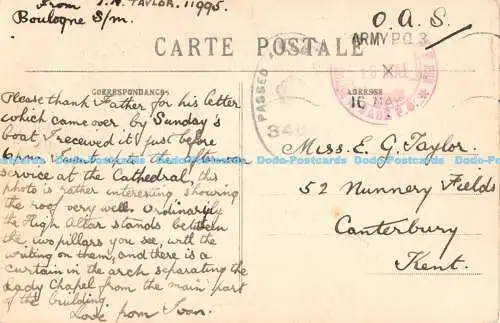 From I. R. TAYLOR. 11995.
Boulogne S/m.
O. A. S.
ARMY P.O. 3
CARTE POSTALE
CORRESPONDANCE
ADRESSE
PASSED
16 MAI
16 MAI
Please thank Father for his letter
which came over by Sunday's
boat, I received it just before
6pm. I went up to the afternoon
service at the Cathedral, this
photo is rather interesting showing
the roof very well. Ordinarily
the High Altar stands between
the two pillars you see, with the
writing on them, and there is a
curtain in the arch separating the
Lady Chapel from the main part
of the building.
Love from Ivan.
Miss. E. G. Taylor.
52 Nunnery Fields
Canterbury
Kent.
Dodo-Postcards Dodo-Postcards Dodo-Postcards Dodo-Postcards